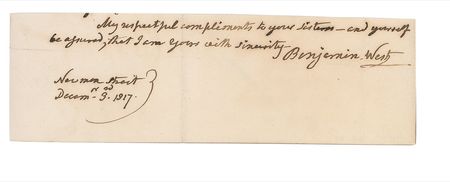 My respectful compliments to your Sisters — and yourself
be assured, that I am Yours with sincerity
Benjamin West
Newman Street
Decemr. 3d. 1817.